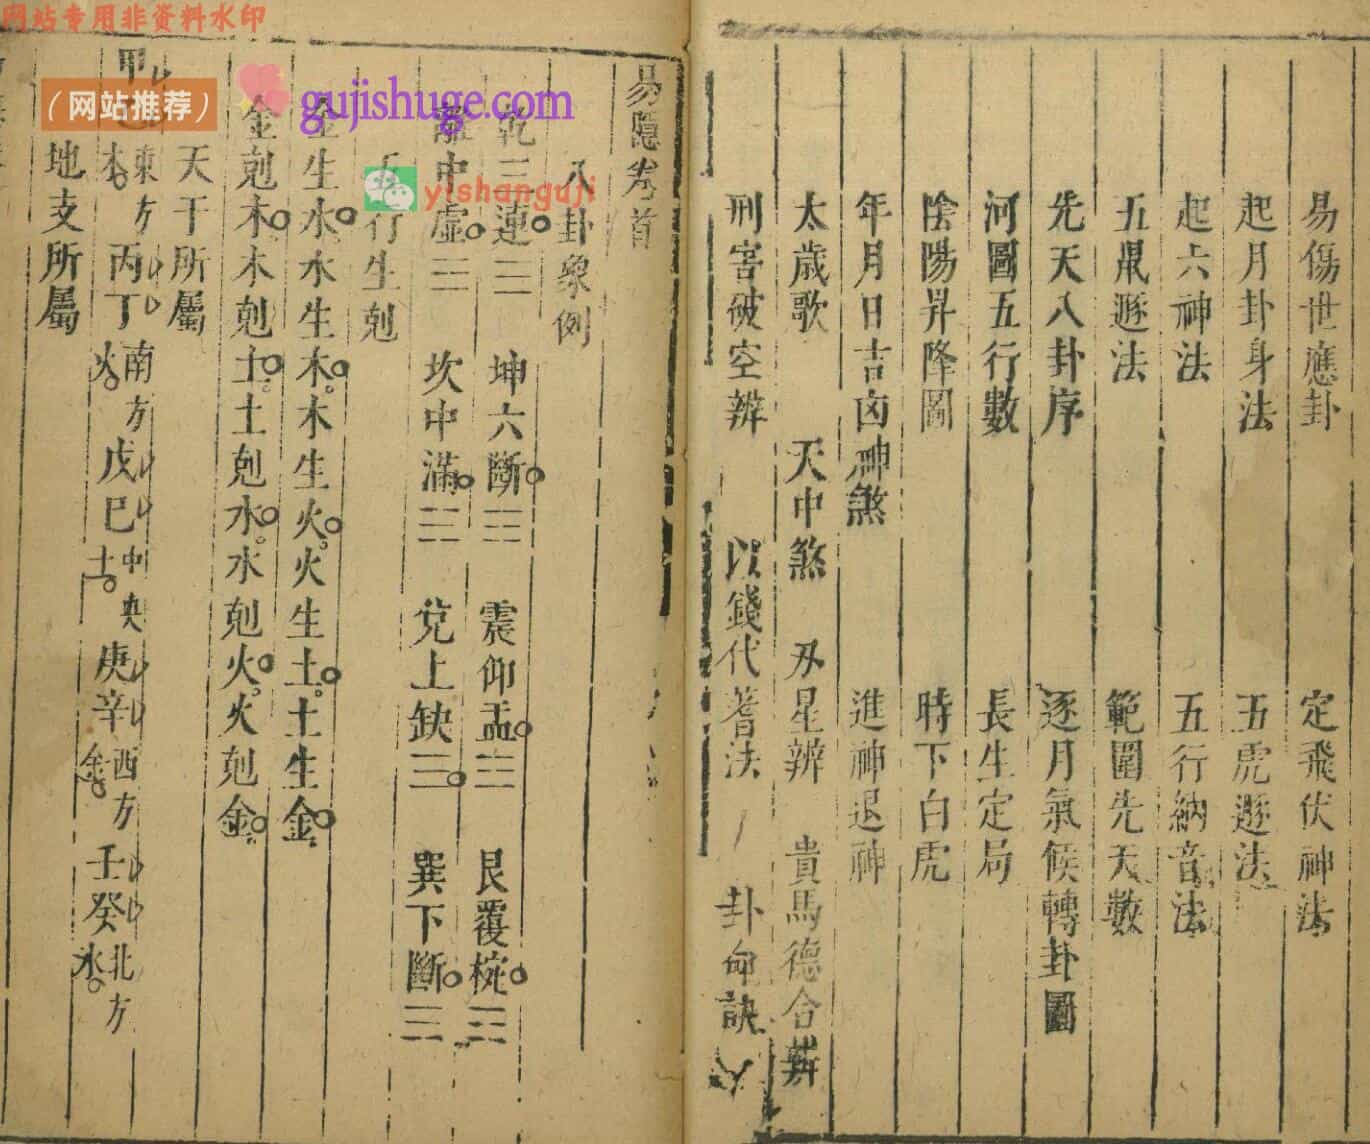 网站专用非资料水印
（网站推荐）
gujishuge.com
yishanguji
易傷世應卦 定飛伏神法
起月卦身法 五虎遯法
起六神法 五行納音法
五鼠遯法 範圍先天數
先天八卦序 逐月氣候轉卦圖
河圖五行數 長生定局
陰陽昇降圖 時下白虎
年月日吉凶神煞 進神退神
太歲歌 天中煞 刃星辨 貴馬德合辨
刑害破空辨 以錢代蓍法 卦命訣
易隱卷首
八卦象例
乾三連☰ 坤六斷☷ 震仰盂☳ 艮覆椀☶
離中虛☲ 坎中滿☵ 兌上缺☱ 巽下斷☴
五行生剋
金生水水生木木生火火生土土生金
金剋木木剋土土剋水水剋火火剋金
天干所屬
甲乙東方木 丙丁南方火 戊巳中央土 庚辛西方金 壬癸北方水
地支所屬